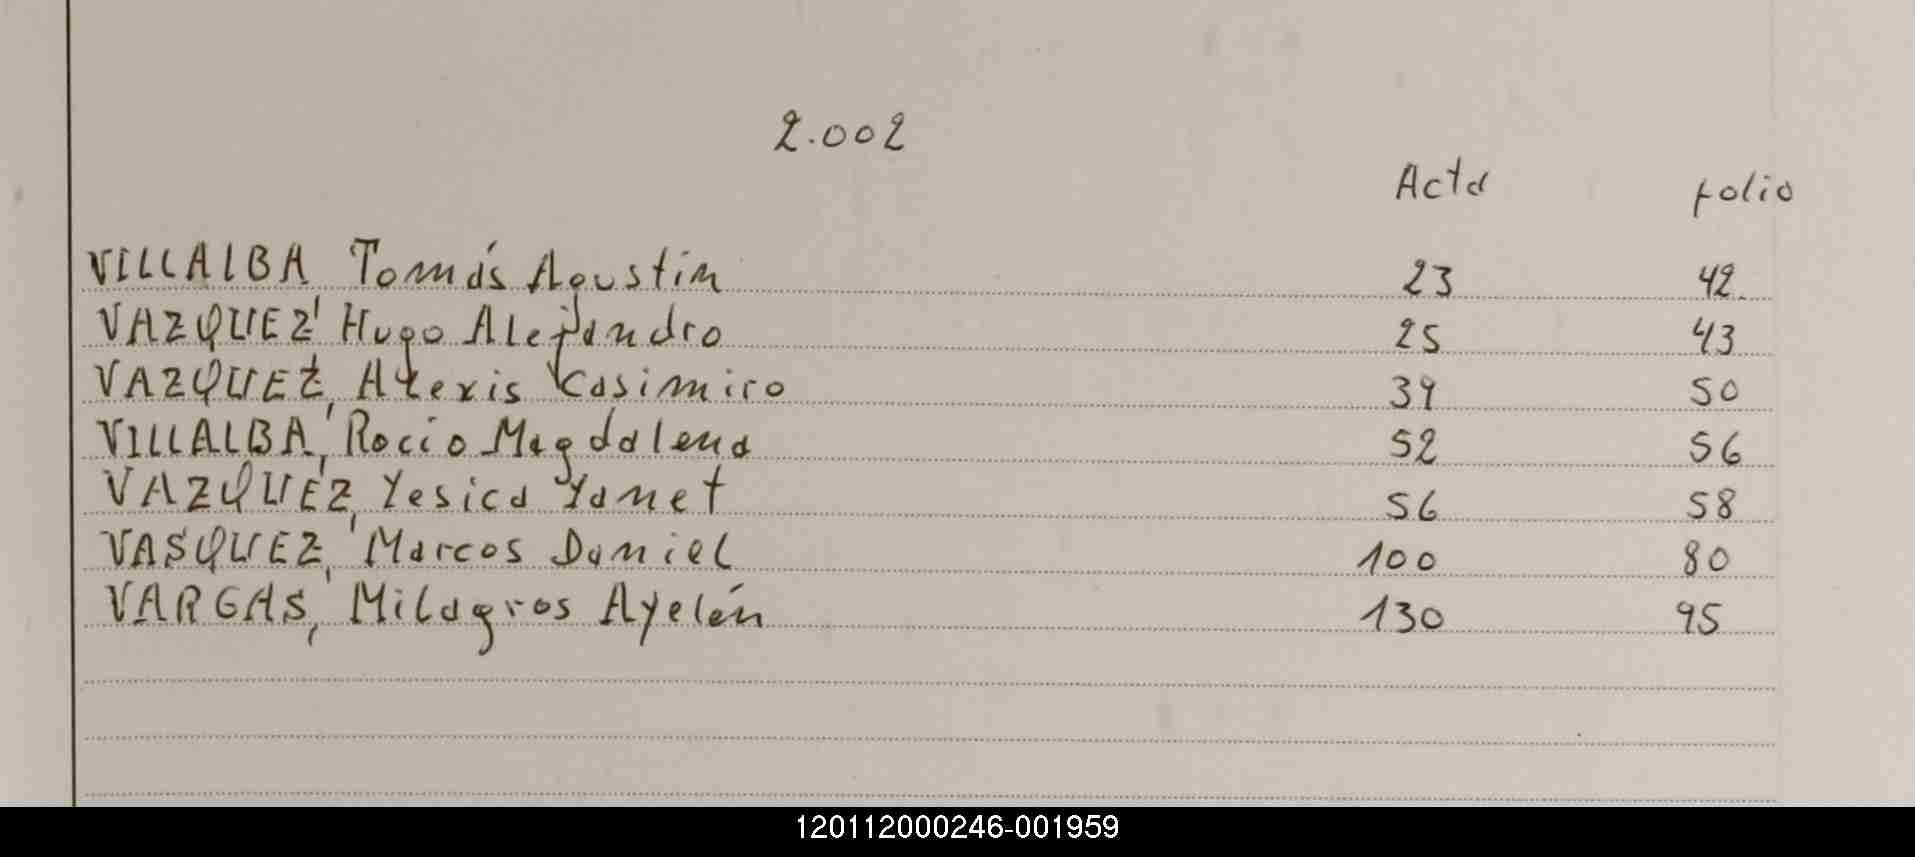 2.002
Acta folio
VILLALBA Tomás Agustin 23 42
VAZQUEZ Hugo Alejandro 25 43
VAZQUEZ, Alexis Casimiro 39 50
VILLALBA, Rocio Magdalena 52 56
VAZQUEZ, Yesica Yanet 56 58
VASQUEZ, Marcos Daniel 100 80
VARGAS, Milagros Ayelén 130 95
120112000246-001959